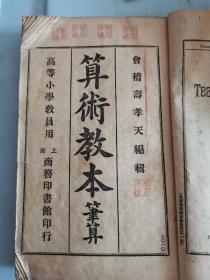 會稽壽孝天編輯
算術教本 筆算
高等小學教員用
上海商務印書館印行
Tea